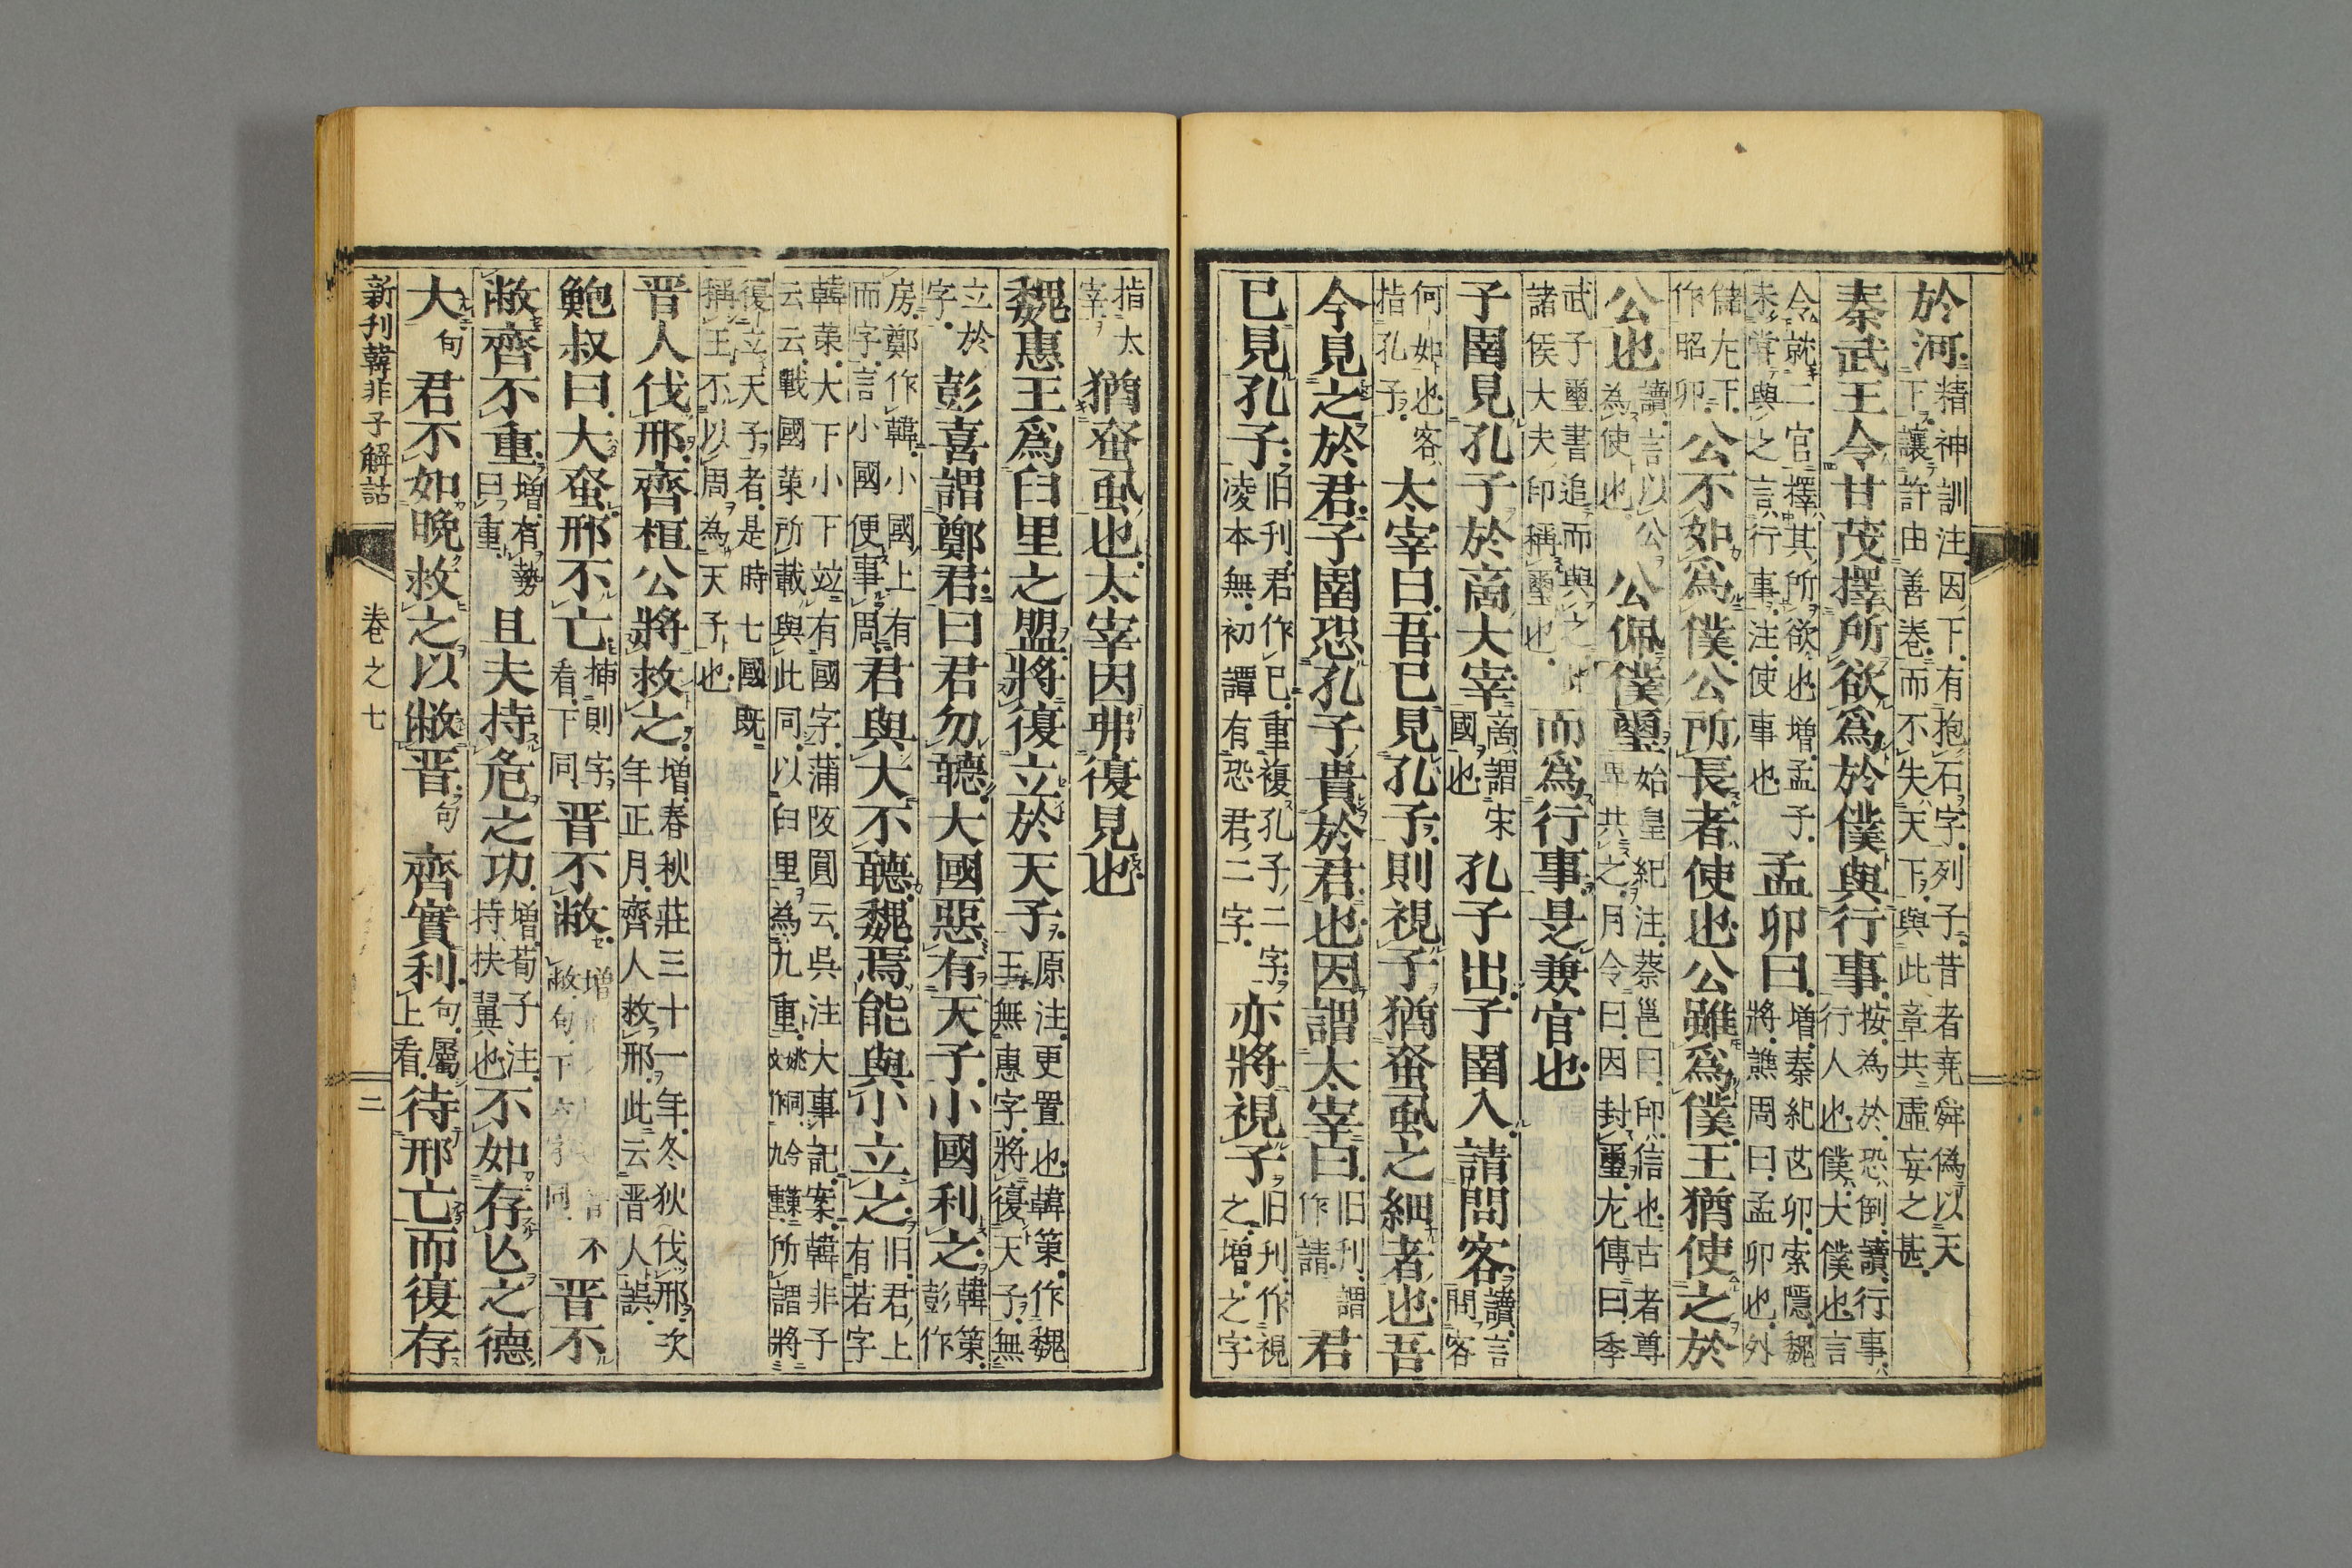 於河精神訓注因下有抱石字列子昔者堯舜偽以天
下讓許由善卷而不失天下與此章共虛妄之甚
秦武王令甘茂擇所欲爲於僕與行事按為於恐倒讀行事
行人也僕大僕也言
令就二官擇其所欲也增孟子
未嘗與之言行事注使事也孟卯曰增秦紀芒卯索隱魏
將譙周曰孟卯也外
儲左下
作昭卯公不如爲僕公所長者使也公雖爲僕王猶使之於
公也讀言以公
為使也公佩僕璽始皇紀注蔡邕曰印信也古者尊
卑共之月令曰因封璽左傳曰季
武子璽書追而與之
諸侯大夫印稱璽也而爲行事是兼官也
子圉見孔子於商大宰商謂宋
國也孔子出子圉入請問客讀言
問客
何如也客
指孔子太宰曰吾已見孔子則視子猶蚤虱之細者也吾
今見之於君子圉恐孔子貴於君也因謂太宰曰旧刊謂
作請君
已見孔子旧刊君作已重複孔子二字
凌本無初譚有恐君二字亦將視子旧刊作視
之增之字
指太
宰猶蚤虱也太宰因弗復見也
魏惠王爲臼里之盟將復立於天子原注更置也韓策作魏
王無惠字將復天子無
立於
字彭喜謂鄭君曰君勿聽大國惡有天子小國利之韓策
彭作
房鄭作韓小國上有
而字言小國便事周君與大不聽魏焉能與小立之旧君上
有若字
韓策大下小下竝有國字蒲阪圓云吳注大事記案韓非子
云云戰國策所載與此同以臼里為九重所謂將
復立天子者是時七國既
稱王不以周為天子也
晋人伐邢齊桓公將救之增春秋莊三十一年冬狄伐邢次
年正月齊人救邢此云晋人誤
鮑叔曰大蚤邢不亡插則字
看下同晋不敝增
敝句下六字同晋不
敝齊不重增有勢
曰重且夫持危之功增荀子注
持扶翼也不如存亾之德
大句君不如晚救之以敝晋句齊實利句屬
上看待邢亡而復存
新刊韓非子解詁
卷之七
二